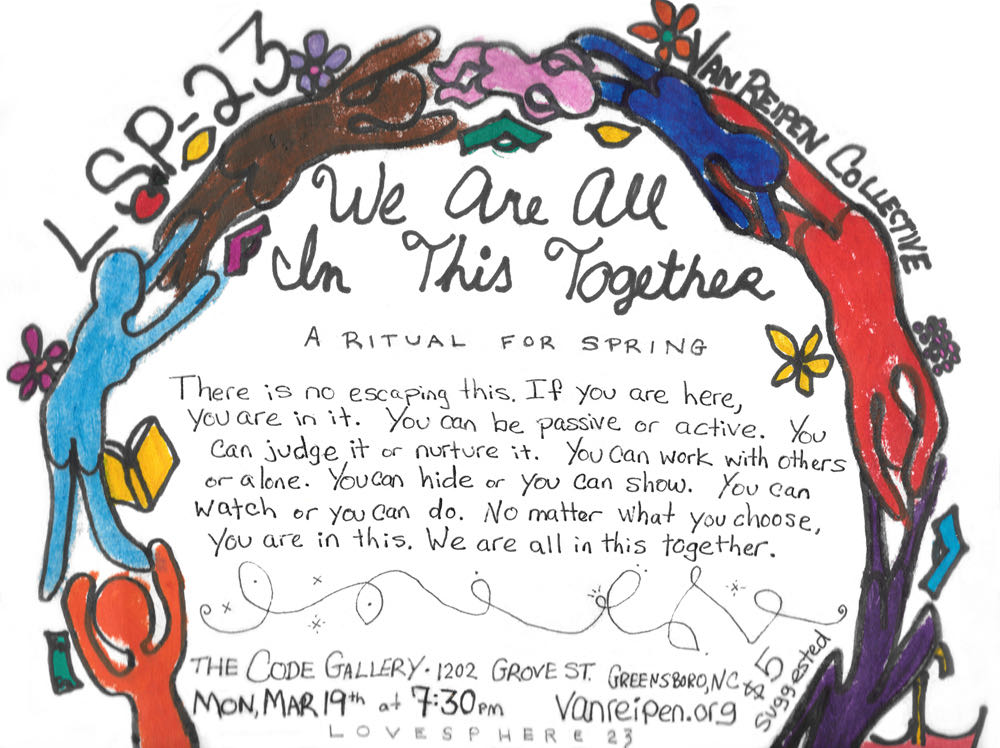 LSP-23
VAN REIPEN COLLECTIVE
We Are All
In This Together
A RITUAL FOR SPRING
There is no escaping this. If you are here,
you are in it. You can be passive or active. You
can judge it or nurture it. You can work with others
or alone. You can hide or you can show. You can
watch or you can do. No matter what you choose,
you are in this. We are all in this together.
THE CODE GALLERY · 1202 GROVE ST. GREENSBORO, NC
$5
suggested
MON, MAR 19th at 7:30pm
vanreipen.org
LOVESPHERE 23